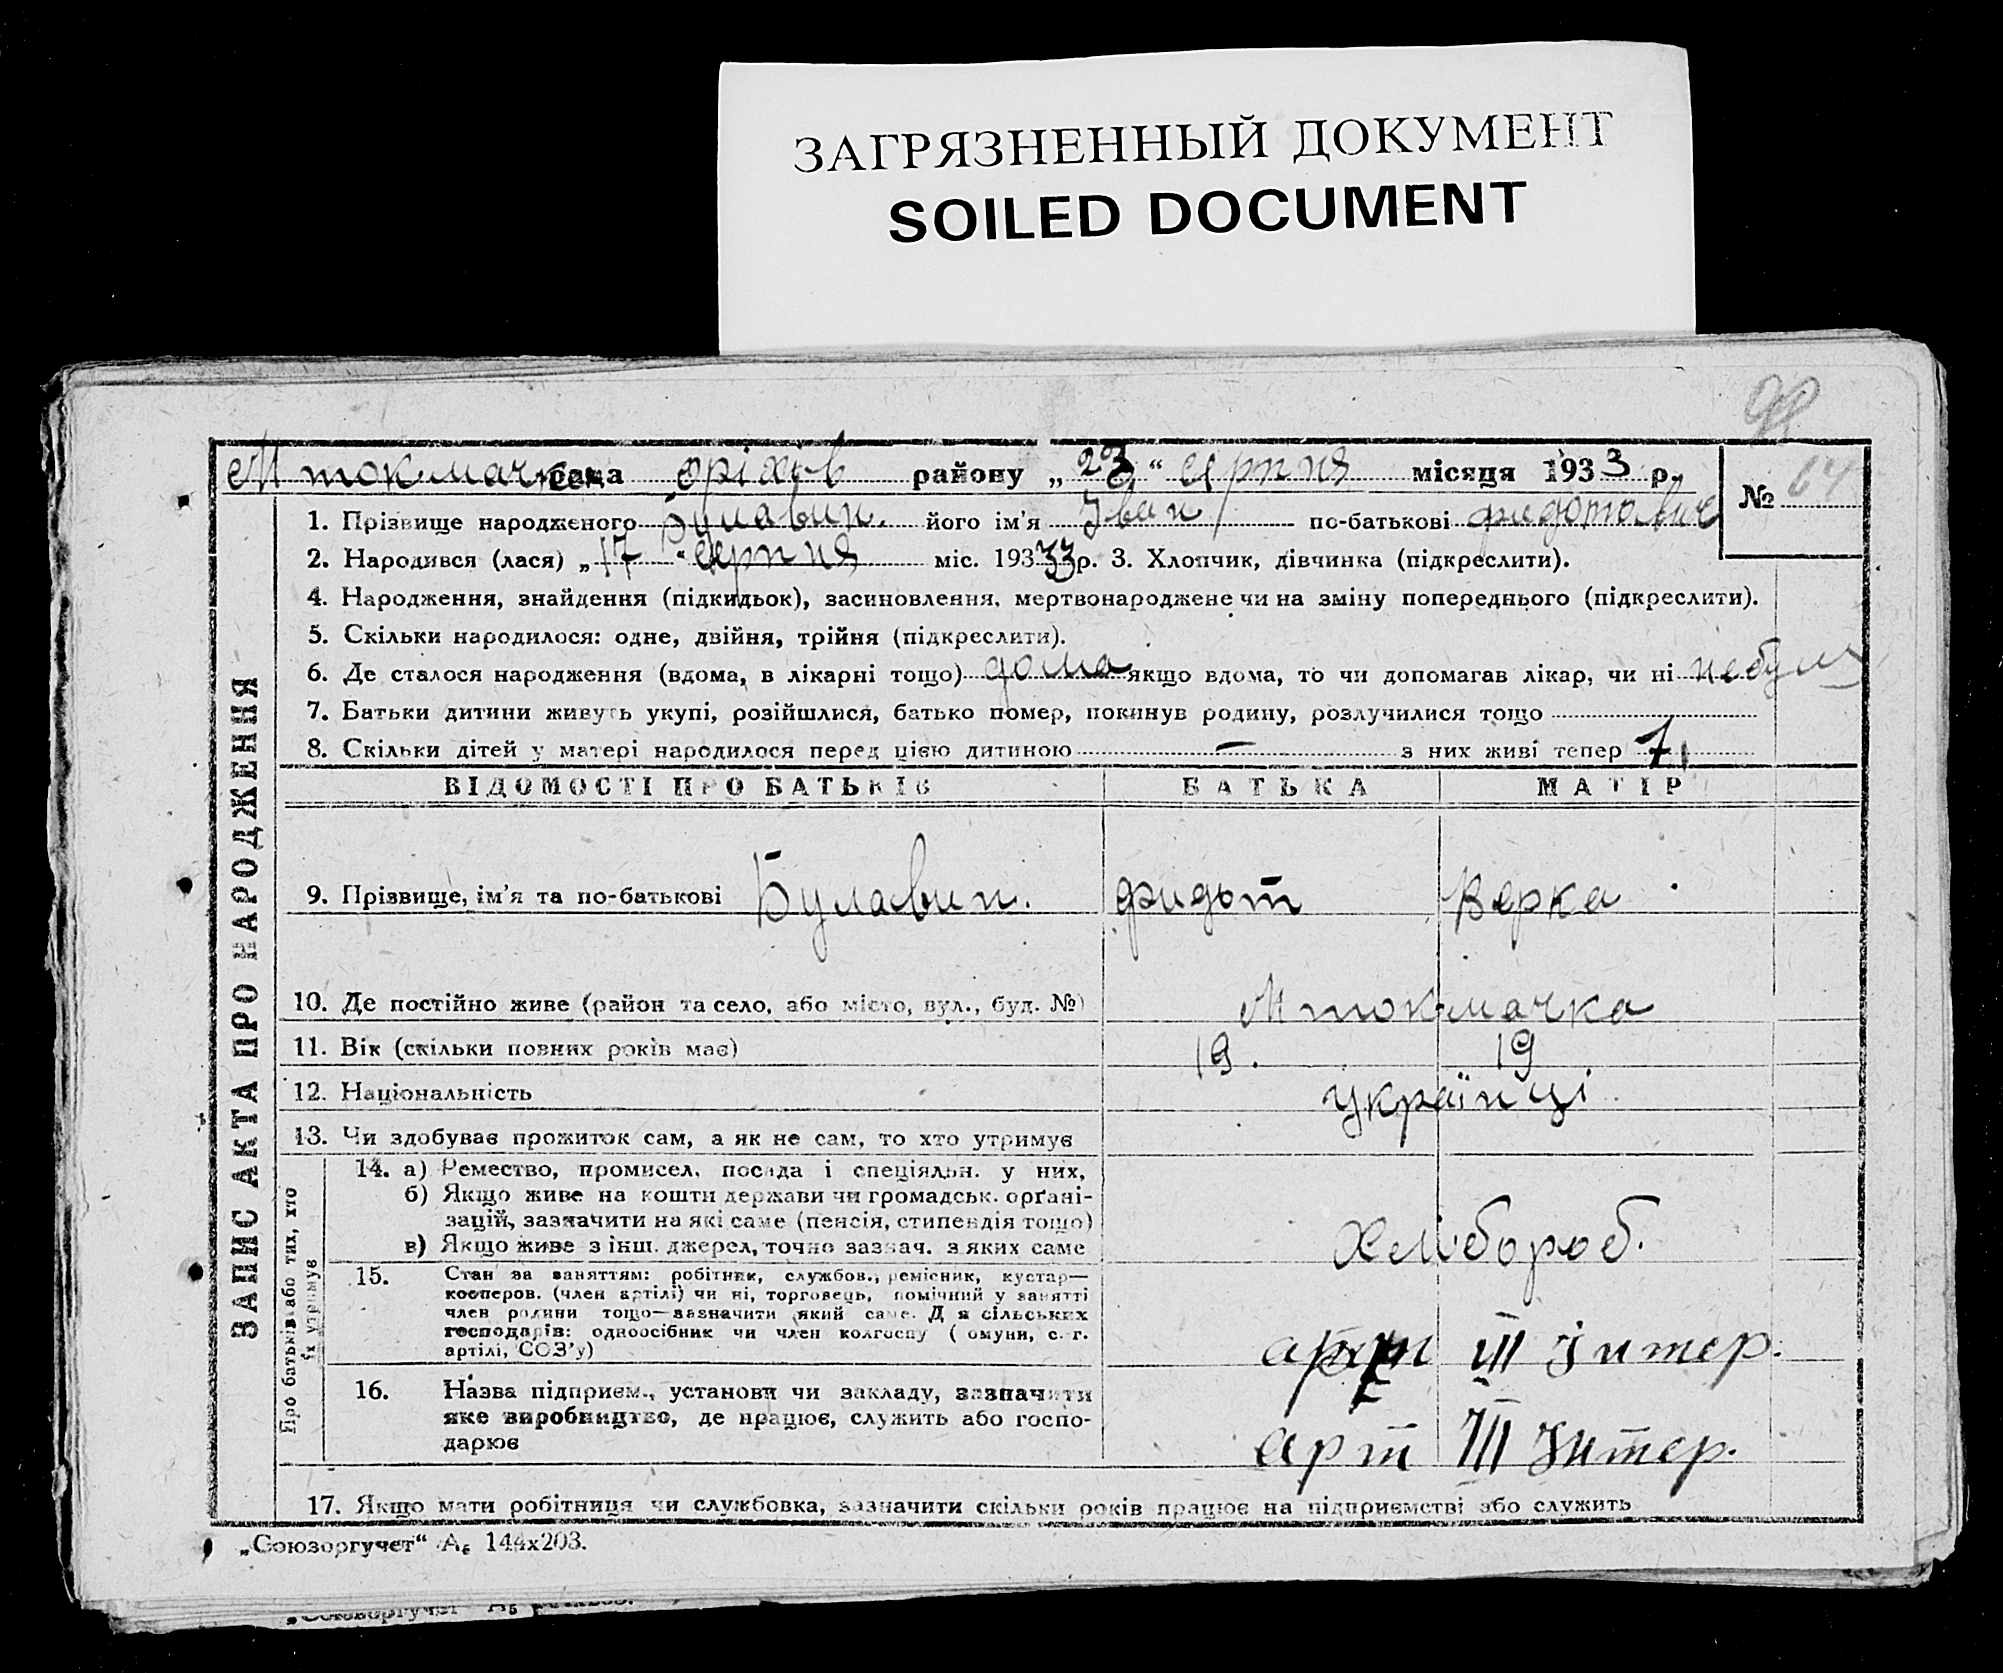 ЗАГРЯЗНЕННЫЙ ДОКУМЕНТ
SOILED DOCUMENT
98
М токмачка рада оріхів району „23“ серпня місяця 1933 р.
№ 64
1. Прізвище народженого Булавин. його ім'я Іван по-батькові фидотович
2. Народився (лася) „17“ серпня міс. 19333 р. 3. Хлопчик, дівчинка (підкреслити).
4. Народження, знайдення (підкидьок), засиновлення, мертвонароджене чи на зміну попереднього (підкреслити).
5. Скільки народилося: одне, двійня, трійня (підкреслити).
6. Де сталося народження (вдома, в лікарні тощо) дома якщо вдома, то чи допомагав лікар, чи ні небуло
7. Батьки дитини живуть укупі, розійшлися, батько помер, покинув родину, розлучилися тощо
8. Скільки дітей у матері народилося перед цією дитиною — з них живі тепер 1
ЗАПИС АКТА ПРО НАРОДЖЕННЯ
ВІДОМОСТІ ПРО БАТЬКІВ БАТЬКА МАТІР
9. Прізвище, ім'я та по-батькові Булавин. фидот Верка
10. Де постійно живе (район та село, або місто, вул., буд. №) М токмачка
11. Вік (скільки повних років має) 19. 19
12. Національність українці
13. Чи здобуває прожиток сам, а як не сам, то хто утримує
Про батьків або тих, хто
їх утримує
14. а) Ремество, промисел, посада і спеціяльн. у них,
б) Якщо живе на кошти держави чи громадськ. орґані-
зацій, зазначити на які саме (пенсія, стипендія тощо)
в) Якщо живе з інш. джерел, точно зазнач. з яких саме
хлібороб.
15. Стан за заняттям: робітник, службов., ремісник, кустар—
кооперов. (член артілі) чи ні, торговець, помічний у занятті
член родини тощо—зазначити який саме. Для сільських
господарів: одноосібник чи член колгоспу (комуни, с.-г.
артілі, СОЗ'у)
III Інтер.
16. Назва підприєм., установи чи закладу, зазначити
яке виробництво, де працює, служить або госпо-
дарює
арт III Інтер.
17. Якщо мати робітниця чи службовка, зазначити скільки років працює на підприємстві або служить
„Союзоргучет“ А₆ 144х203.
„Союзоргучет“ А₆